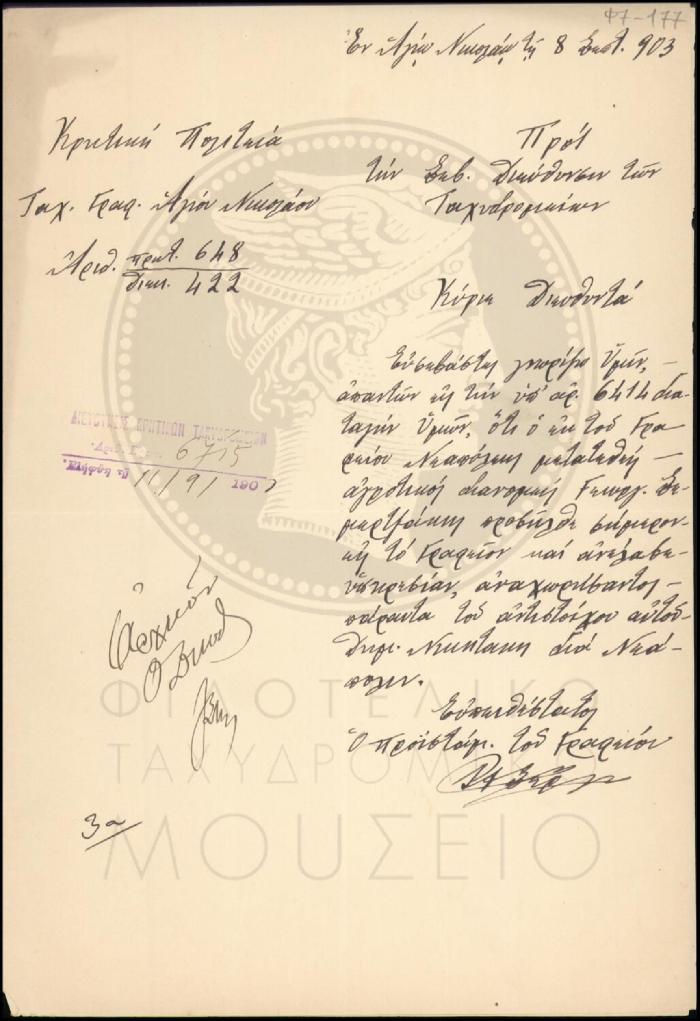 Φ7-177
Ἐν Ἁγίῳ Νικολάῳ τῇ 8 Σεπτ. 903
Κρητική Πολιτεία
Ταχ. Γραφ. Ἁγίου Νικολάου
Ἀριθ. πρωτ. 648
διεκπ. 422
Πρός
τήν Σεβ. Διεύθυνσιν τῶν
Ταχυδρομείων
Κύριε Διευθυντά
Εὐσεβάστως γνωρίζω Ὑμῖν,
ἀπαντῶν εἰς τήν ὑπ' ἀρ. 6414 δια-
ταγήν Ὑμῶν, ὅτι ὁ ἐκ τοῦ Γρα-
φείου Νεαπόλεως μετατεθείς
ἀγροτικός διανομεύς Γεώργ.
προσῆλθε σήμερον
εἰς τό Γραφεῖον καί ἀνέλαβε
ὑπηρεσίαν, ἀναχωρήσαντος
τοῦ ἀντιστοίχου αὐτοῦ
Δημ. Νικητάκη διά Νεά-
πολιν.
Εὐπειθέστατος
Ὁ προϊστάμ. τοῦ Γραφείου
ΔΙΕΥΘΥΝΣΙΣ ΚΡΗΤΙΚΩΝ ΤΑΧΥΔΡΟΜΕΙΩΝ
6715
11/9/ 190
Ἀρχεῖον
Ὁ Διευθ
3α
ΦΙΛΟΤΕΛΙΚΟ
ΤΑΧΥΔΡΟΜΙΚΟ
ΜΟΥΣΕΙΟ